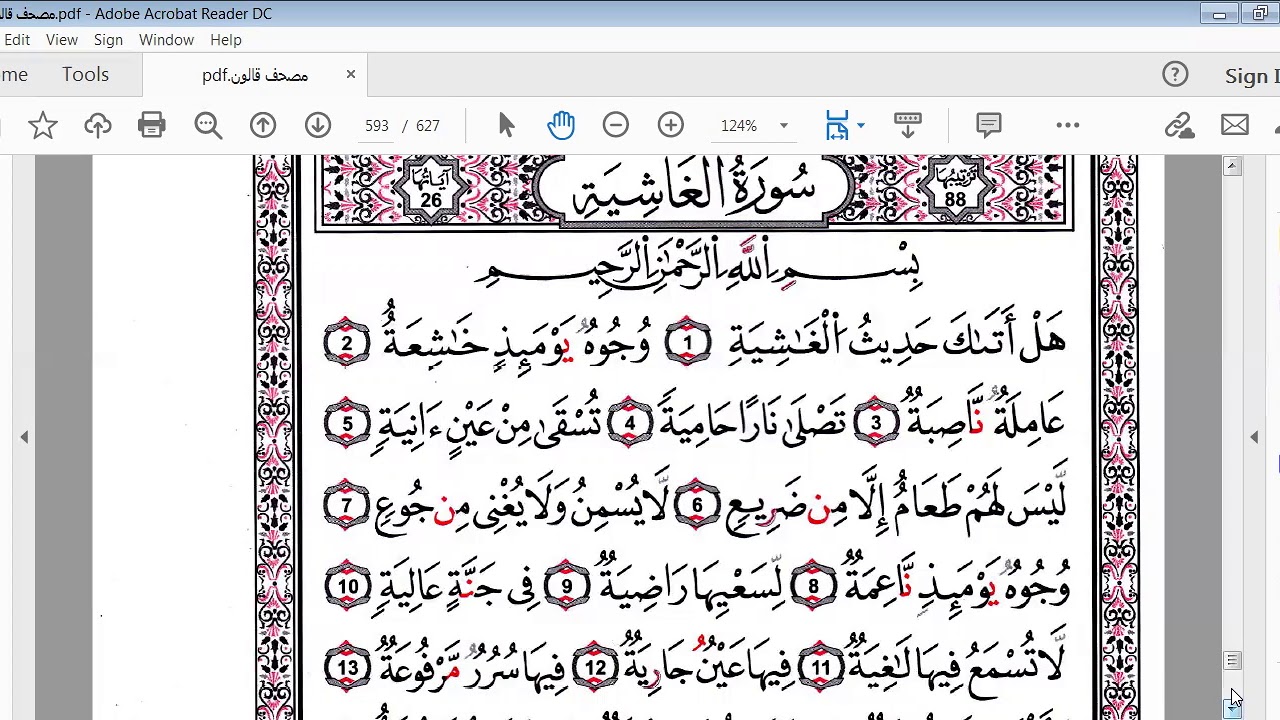 مصحف قالون.pdf - Adobe Acrobat Reader DC
Edit View Sign Window Help
ome Tools مصحف قالون.pdf × Sign I
593 / 627 124%
آيَاتُهَا 26 سُورَةُ الْغَاشِيَةِ تَرْتِيبُهَا 88
بِسْمِ اِللَّهِ اِلرَّحْمَٰنِ اِلرَّحِيمِ
هَلْ أَتَىٰكَ حَدِيثُ اُلْغَٰشِيَةِ 1 وُجُوهٌ يَوْمَئِذٍ خَٰشِعَةٌ 2
عَامِلَةٌ نَّاصِبَةٌ 3 تَصْلَىٰ نَارًا حَامِيَةً 4 تُسْقَىٰ مِنْ عَيْنٍ ءَانِيَةٍ 5
لَّيْسَ لَهُمْ طَعَامٌ إِلَّا مِن ضَرِيعٍ 6 لَّا يُسْمِنُ وَلَا يُغْنِى مِن جُوعٍ 7
وُجُوهٌ يَوْمَئِذٍ نَّاعِمَةٌ 8 لِّسَعْيِهَا رَاضِيَةٌ 9 فِى جَنَّةٍ عَالِيَةٍ 10
لَّا تُسْمَعُ فِيهَا لَٰغِيَةٌ 11 فِيهَا عَيْنٌ جَارِيَةٌ 12 فِيهَا سُرُرٌ مَّرْفُوعَةٌ 13